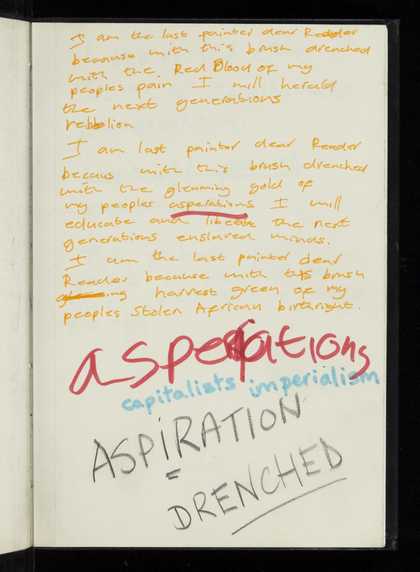 I am the last painter dear Reader
because with this brush drenched
with the Red Blood of my
peoples pain I will herald
the next generations
rebellion
I am last painter dear Reader
becaus with this brush drenched
with the gleaming gold of
my peoples asperations I will
educate and liberate the next
generations enslaved minds.
I am the last painter dear
Reader because with this brush
harvest green of my
peoples stolen African birthright.
asperations
capitalists imperialism
ASPIRATION
DRENCHED